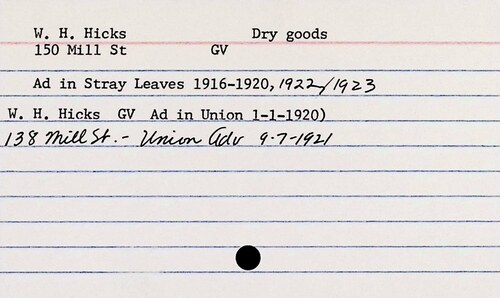 W. H. Hicks Dry goods
150 Mill St GV
Ad in Stray Leaves 1916-1920, 1922/1923
W. H. Hicks GV Ad in Union 1-1-1920)
138 Mill St. - Union Adv 9-7-1921